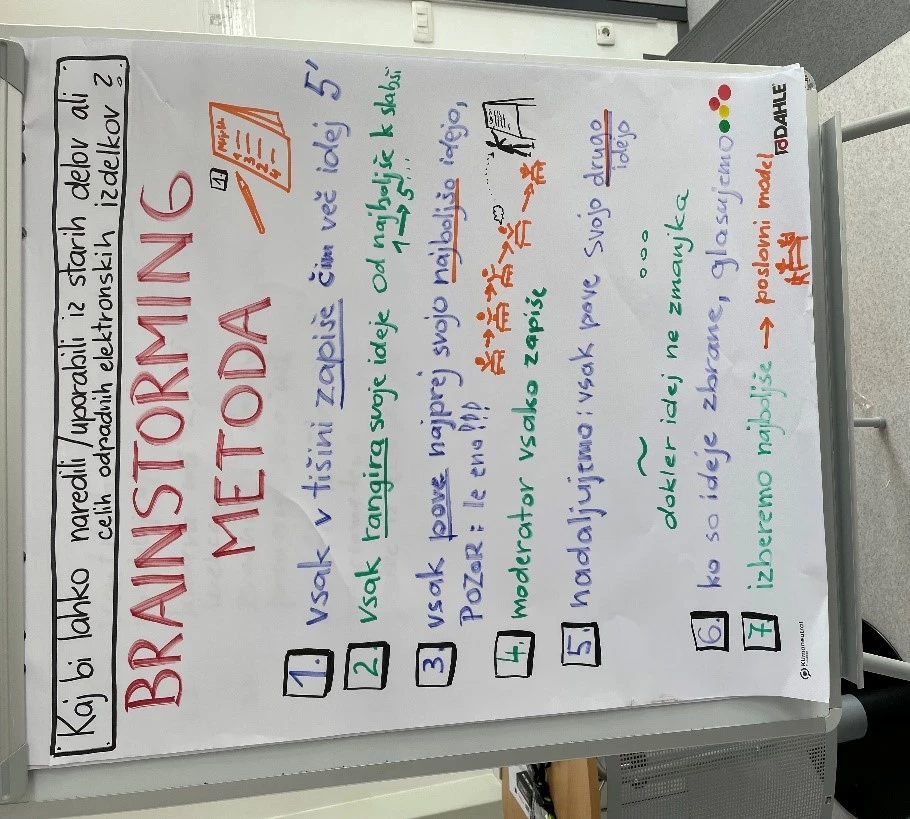 Kaj bi lahko naredili/uporabili iz starih delov ali
celih odpadnih elektronskih izdelkov?
BRAINSTORMING
METODA
1
1. vsak v tišini zapiše čim več idej 5'
2. vsak rangira svoje ideje od najboljše k slabši
1 → 5...
3. vsak pove najprej svojo najboljšo idejo,
POZOR: le eno!!!
4. moderator vsako zapiše
5. nadaljujemo: vsak pove svojo drugo
idejo
dokler idej ne zmanjka
6. ko so ideje zbrane, glasujemo
7 izberemo najboljše → poslovni model
Klimaneutral
DAHLE